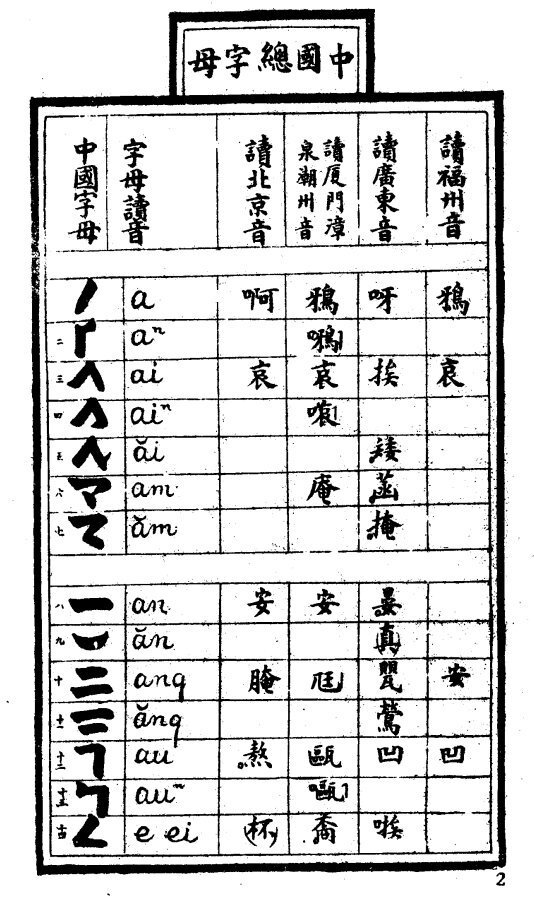 中國總字母
中國字母 字母讀音 讀北京音 讀厦門漳泉潮州音 讀廣東音 讀福州音
a 啊 鴉 呀 鴉
二 aⁿ
三 ai 哀 哀 挨 哀
四 aiⁿ
五 ăi 矮
六 am 庵
七 ăm 掩
八 an 安 安 晏
九 ăn
十 ang 腌 安
十一 ăng 鶯
十二 au 熬 甌 凹 凹
十三 auⁿ
十四 e ei (杯)
2